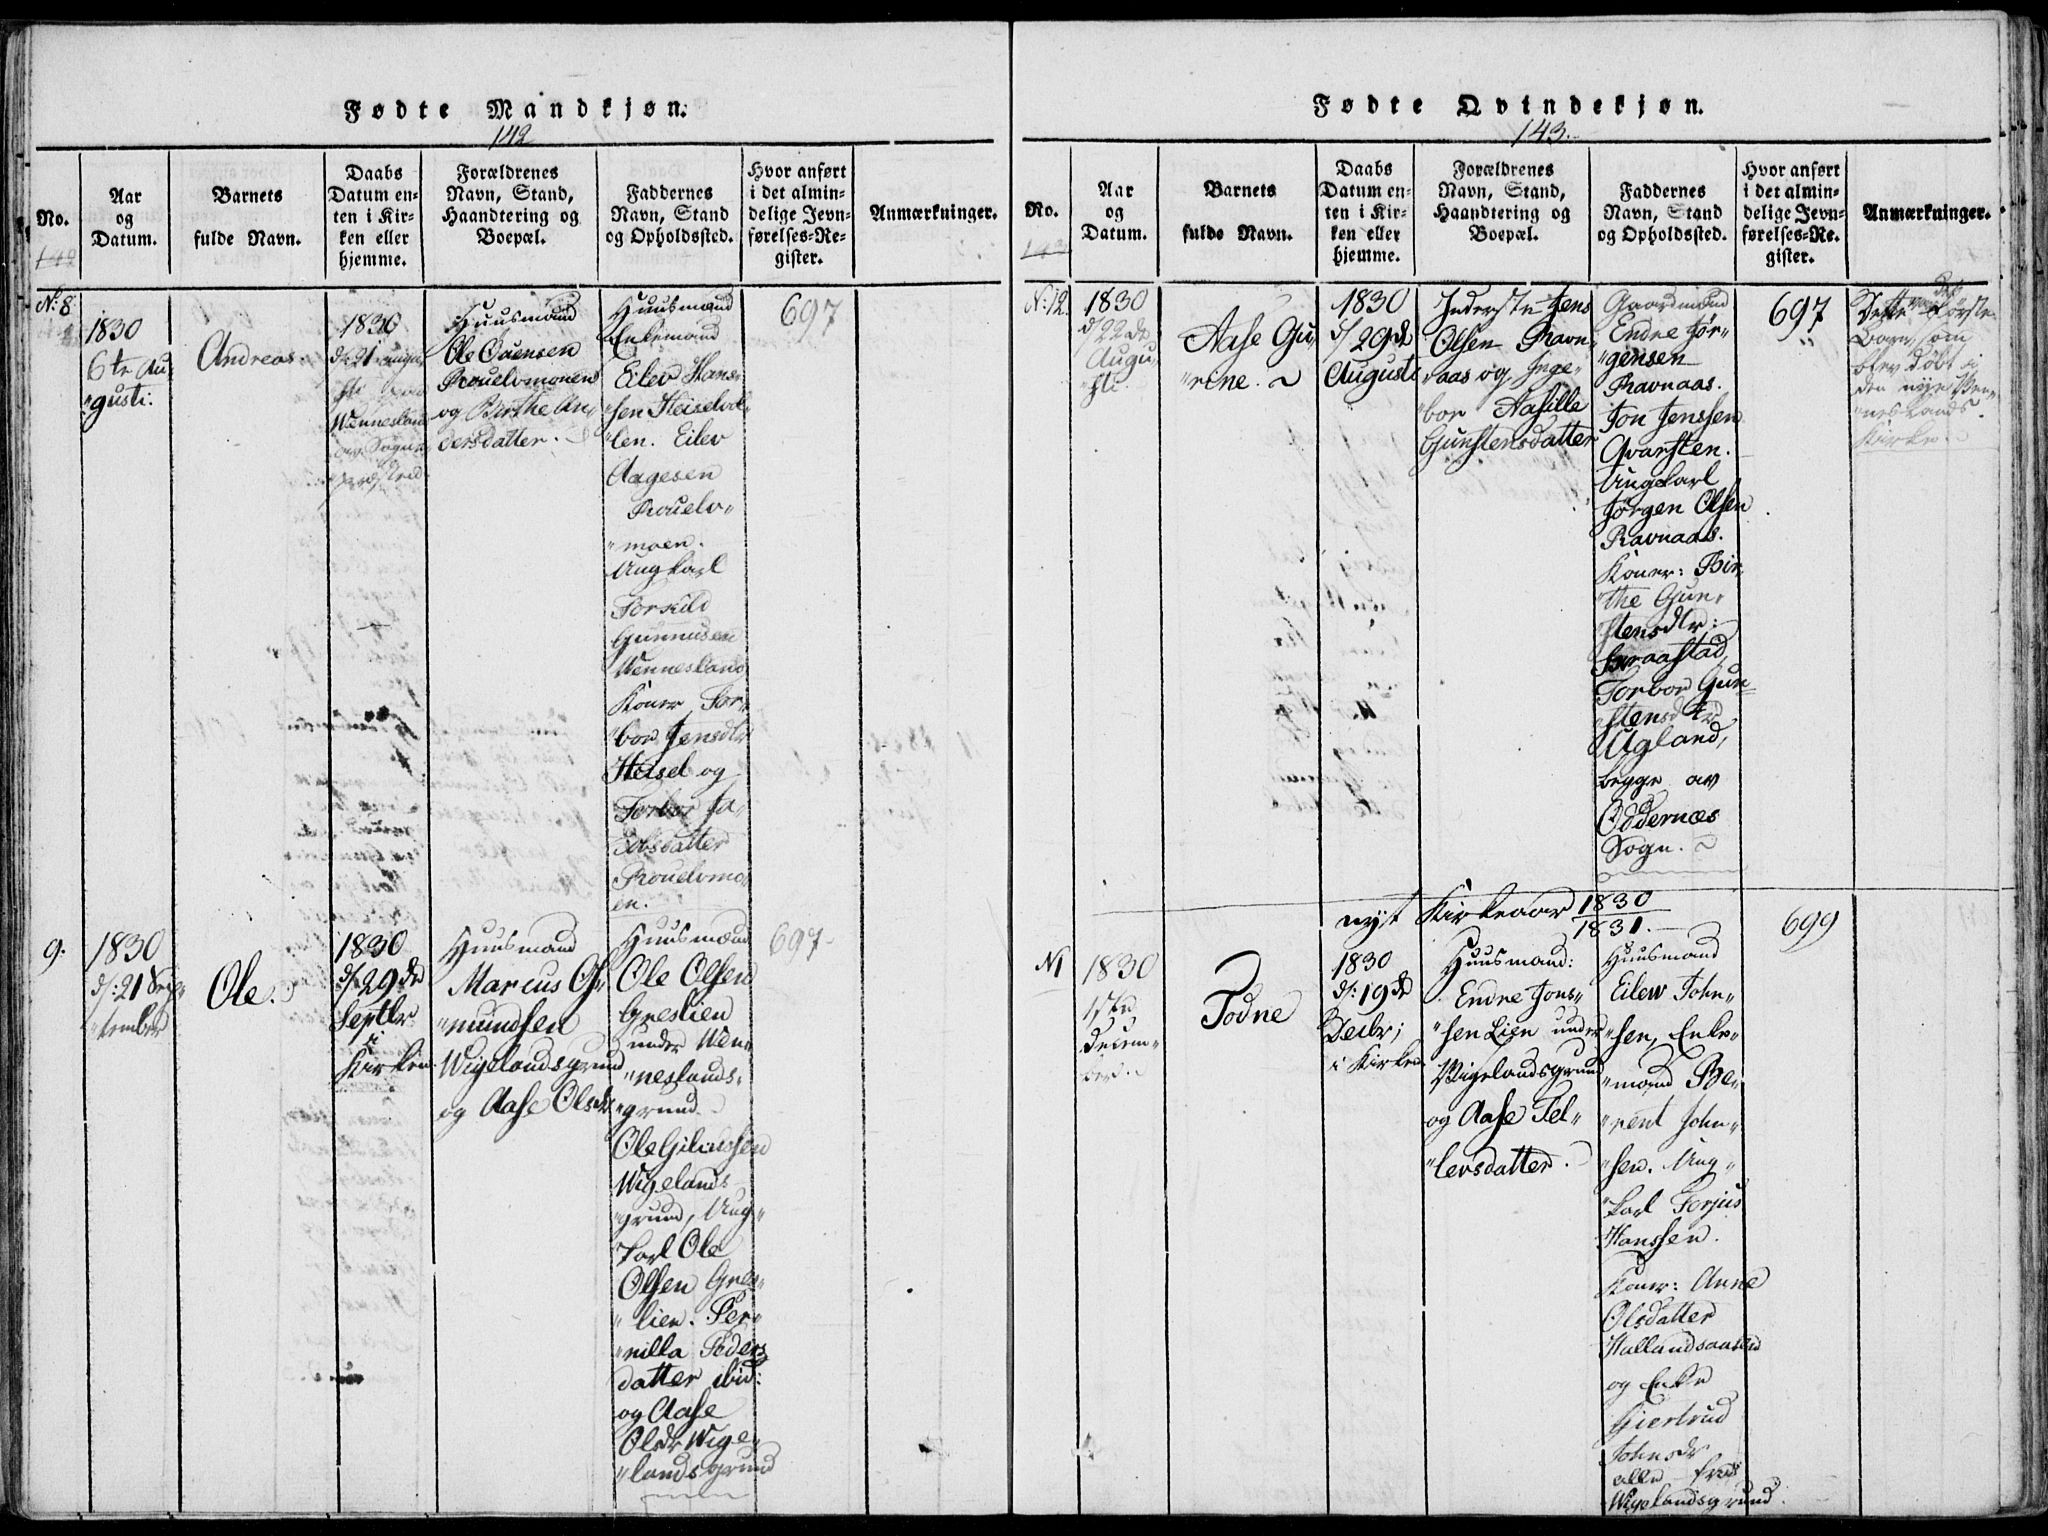 Fødte Mandkjøn.
142
No.
Aar
og
Datum.
Barnets
fulde Navn.
Daabs
Datum en-
ten i Kir-
ken eller
hjemme.
Forældrenes
Navn, Stand,
Haandtering og
Boepæl.
Faddernes
Navn, Stand
og Opholdssted.
Hvor anført
i det almin-
delige Jevn-
førelses-Re-
gister.
Anmærkninger.
142
N: 8
1830
6te Au
"gusti.
Andreas
1830
d: 21 augu
sti
Wennesland
av Sogne
præsten
Huusmand
Ole
Rouelvmonen
og Birthe An,
dersdatter.
Huusmænd
Enkemand
Eilev Hans,
"sen Heiseldal,
"len. Eilev
Aagesen
Rouelv„
"moen.
Ungkarl
Torkild
Gunnusen
Wennesland
Koner Tor,
"bor Jensdtr
Heisel og
Torbor Ja,
cobsdatter
Rouelvmo,
en.
697
9.
1830
d: 21 Sep„
"tember
Ole.
1830
d/29de
Septbr
i
Kirken.
Huusmand
Marcus O,
"mundsen
Wigelandsgrund
og Aase Olsdtr
Huusmænd
Ole Olsen
Greslien
under Wen„
"neslands,
"grund.
Ole Giliussen
Wigelands
"grund, Ung„
"karl Ole
Olsen Gres„
"lien. Per„
"nilla Peders
datter ibid:
og Aase
Olsdr Wige„
"landsgrund
697
Fødte Qvindekjøn.
143.
No.
Aar
og
Datum.
Barnets
fulde Navn.
Daabs
Datum en-
ten i Kir-
ken eller
hjemme.
Forældrenes
Navn, Stand,
Haandtering og
Boepæl.
Faddernes
Navn, Stand
og Opholdssted.
Hvor anført
i det almin-
delige Jevn-
førelses-Re-
gister.
Anmærkninger.
143
N: 12.
1830
d/22de
Augu„
"sti
Aase Gu„
"rine.
1830
d/29de
Augusti
Inderste Jens
Olsen Ravn„
"aas og Inge„
"bor Aasille
Gunstensdatter
Gaardmænd
Endre Jør„
"gensen
Ravnaas.
Jon Jenssen
Qvarsten.
Ungkarl
Jørgen Olsen
Ravnaas.
Koner: Bir,
"the Gun„
"stensdtr:
Braastad,
Torbor Gun
"stensdtr
Ugland,
begge av
Oddernæs
Sogn.
697
Dette var det
første
Barn, som
blev døbt i
den nye Wen„
"neslands
Kirke.
nyt Kirkeaar 1830
1831.
N1
1830
1ste
Decem„
"ber
Todne
1830
d: 19de
Decbr;
i Kirken
Huusmand:
Endre Jons„
"sen Lien under
Wigelandsgrund
og Aase Tel„
"levsdatter.
Huusmand
Eilev John„
"sen, Enke„
"mand Be„
"rent John„
"sen. Ung„
"karl Torjus
Hanssen.
Koner: Anne
Olsdatter
Hallandsaasen
og Enke
Giertrud
Johnsdr
alle fra
Wigelandsgrund.
699